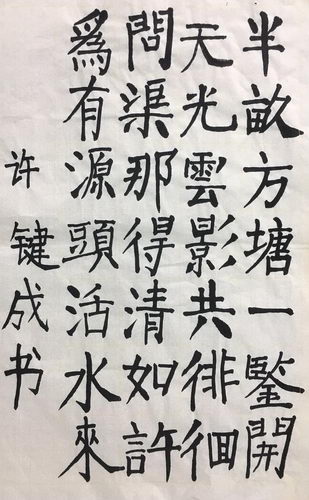 半畝方塘一鑒開
天光雲影共徘徊
問渠那得清如許
爲有源頭活水來
许键成书